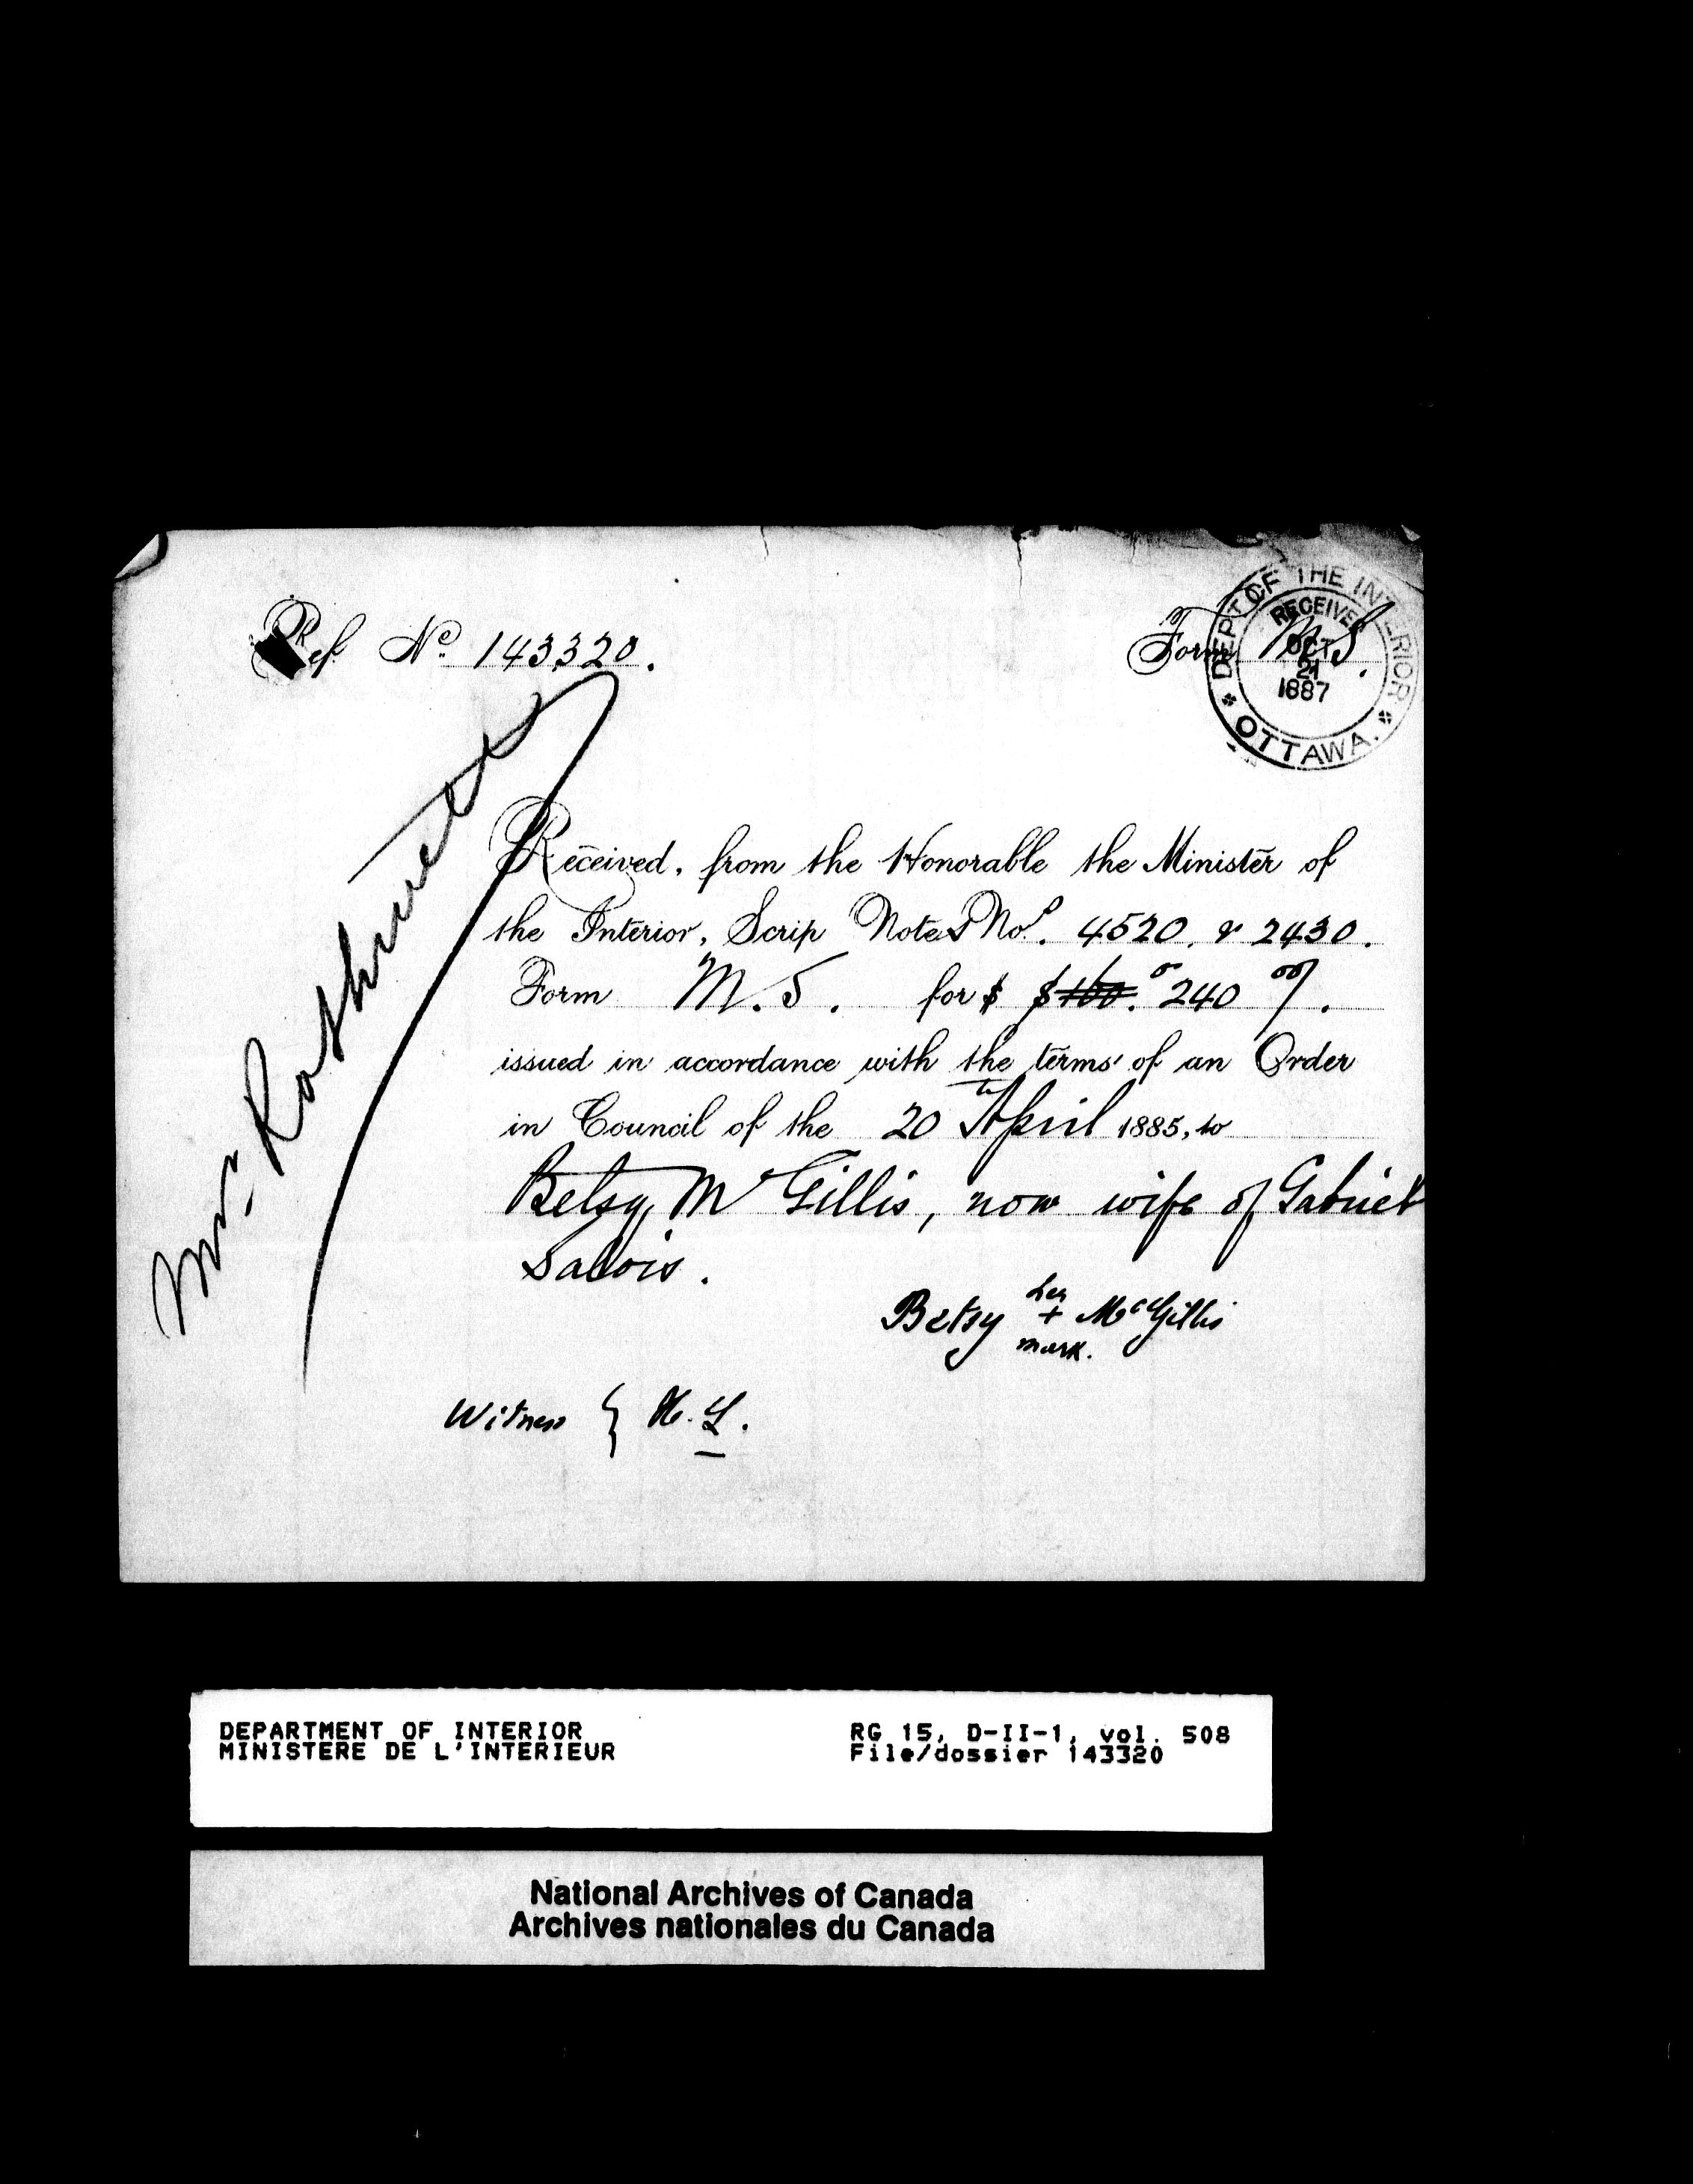 Ref. No. 143320.
Form M.S.
DEPT OF THE INTERIOR
RECEIVED
OCT
21
1887
OTTAWA.
Received, from the Honorable the Minister of
the Interior, Scrip Notes Nos. 4520. & 2430.
Form M.S. for $ $160.00 240 00/.
issued in accordance with the terms of an Order
in Council of the 20th April 1885, to
Betsy McGillis, now wife of Gabriel
Salois.
Betsy her + McGillis
mark.
Witness } H. L.
Mr.
DEPARTMENT OF INTERIOR
MINISTERE DE L'INTERIEUR
RG 15, D-II-1, vol. 508
File/dossier 143320
National Archives of Canada
Archives nationales du Canada